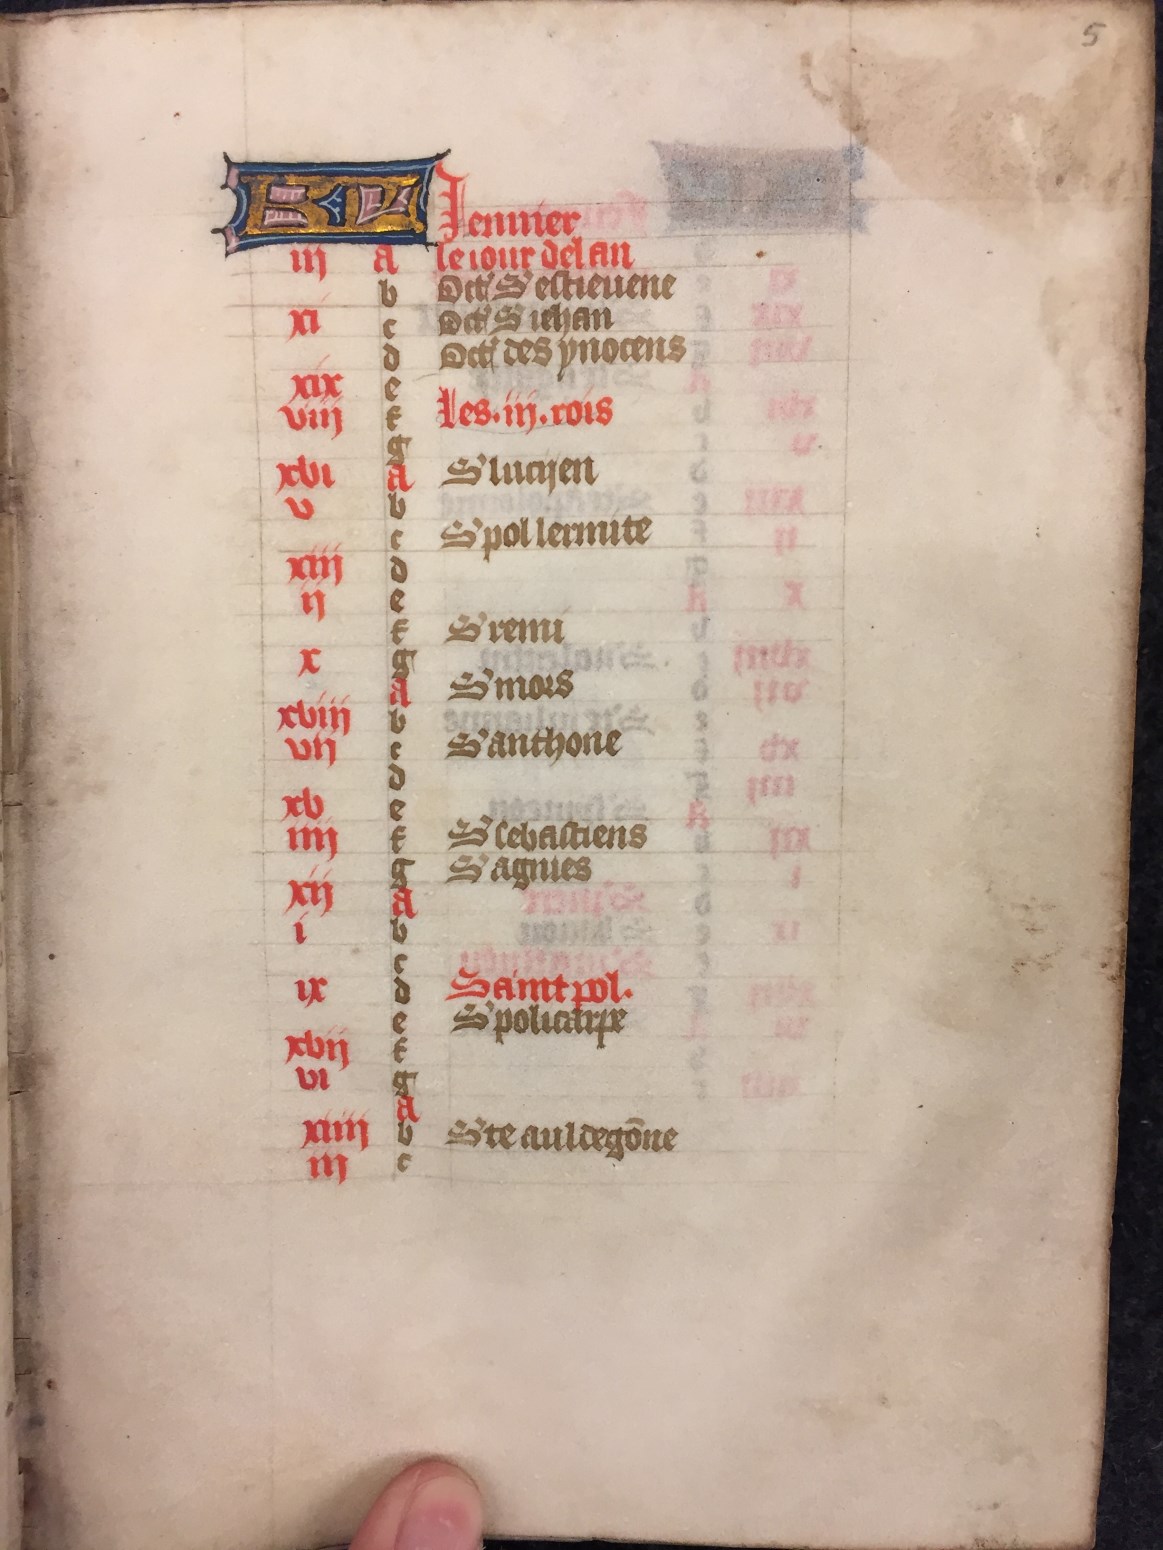 5
KL Jenvier
iii a le iour del an
b Oct' S' estievene
xi c Oct' S iehan
d Oct' des ynocens
xix e
viii f Les .iij. rois
g
xvi a S' lucijen
v b
c S' pol lermite
xiij d
ij e
f S' remi
x g
a S' mors
xviij b
vij c S' anthone
d
xv e
iiij f S' sebastiens
g S' agnies
xij a
i b
c
ix d Saint pol.
e S' policarpe
xvij f
vi g
a
xiiij b Ste auldegōne
iij c